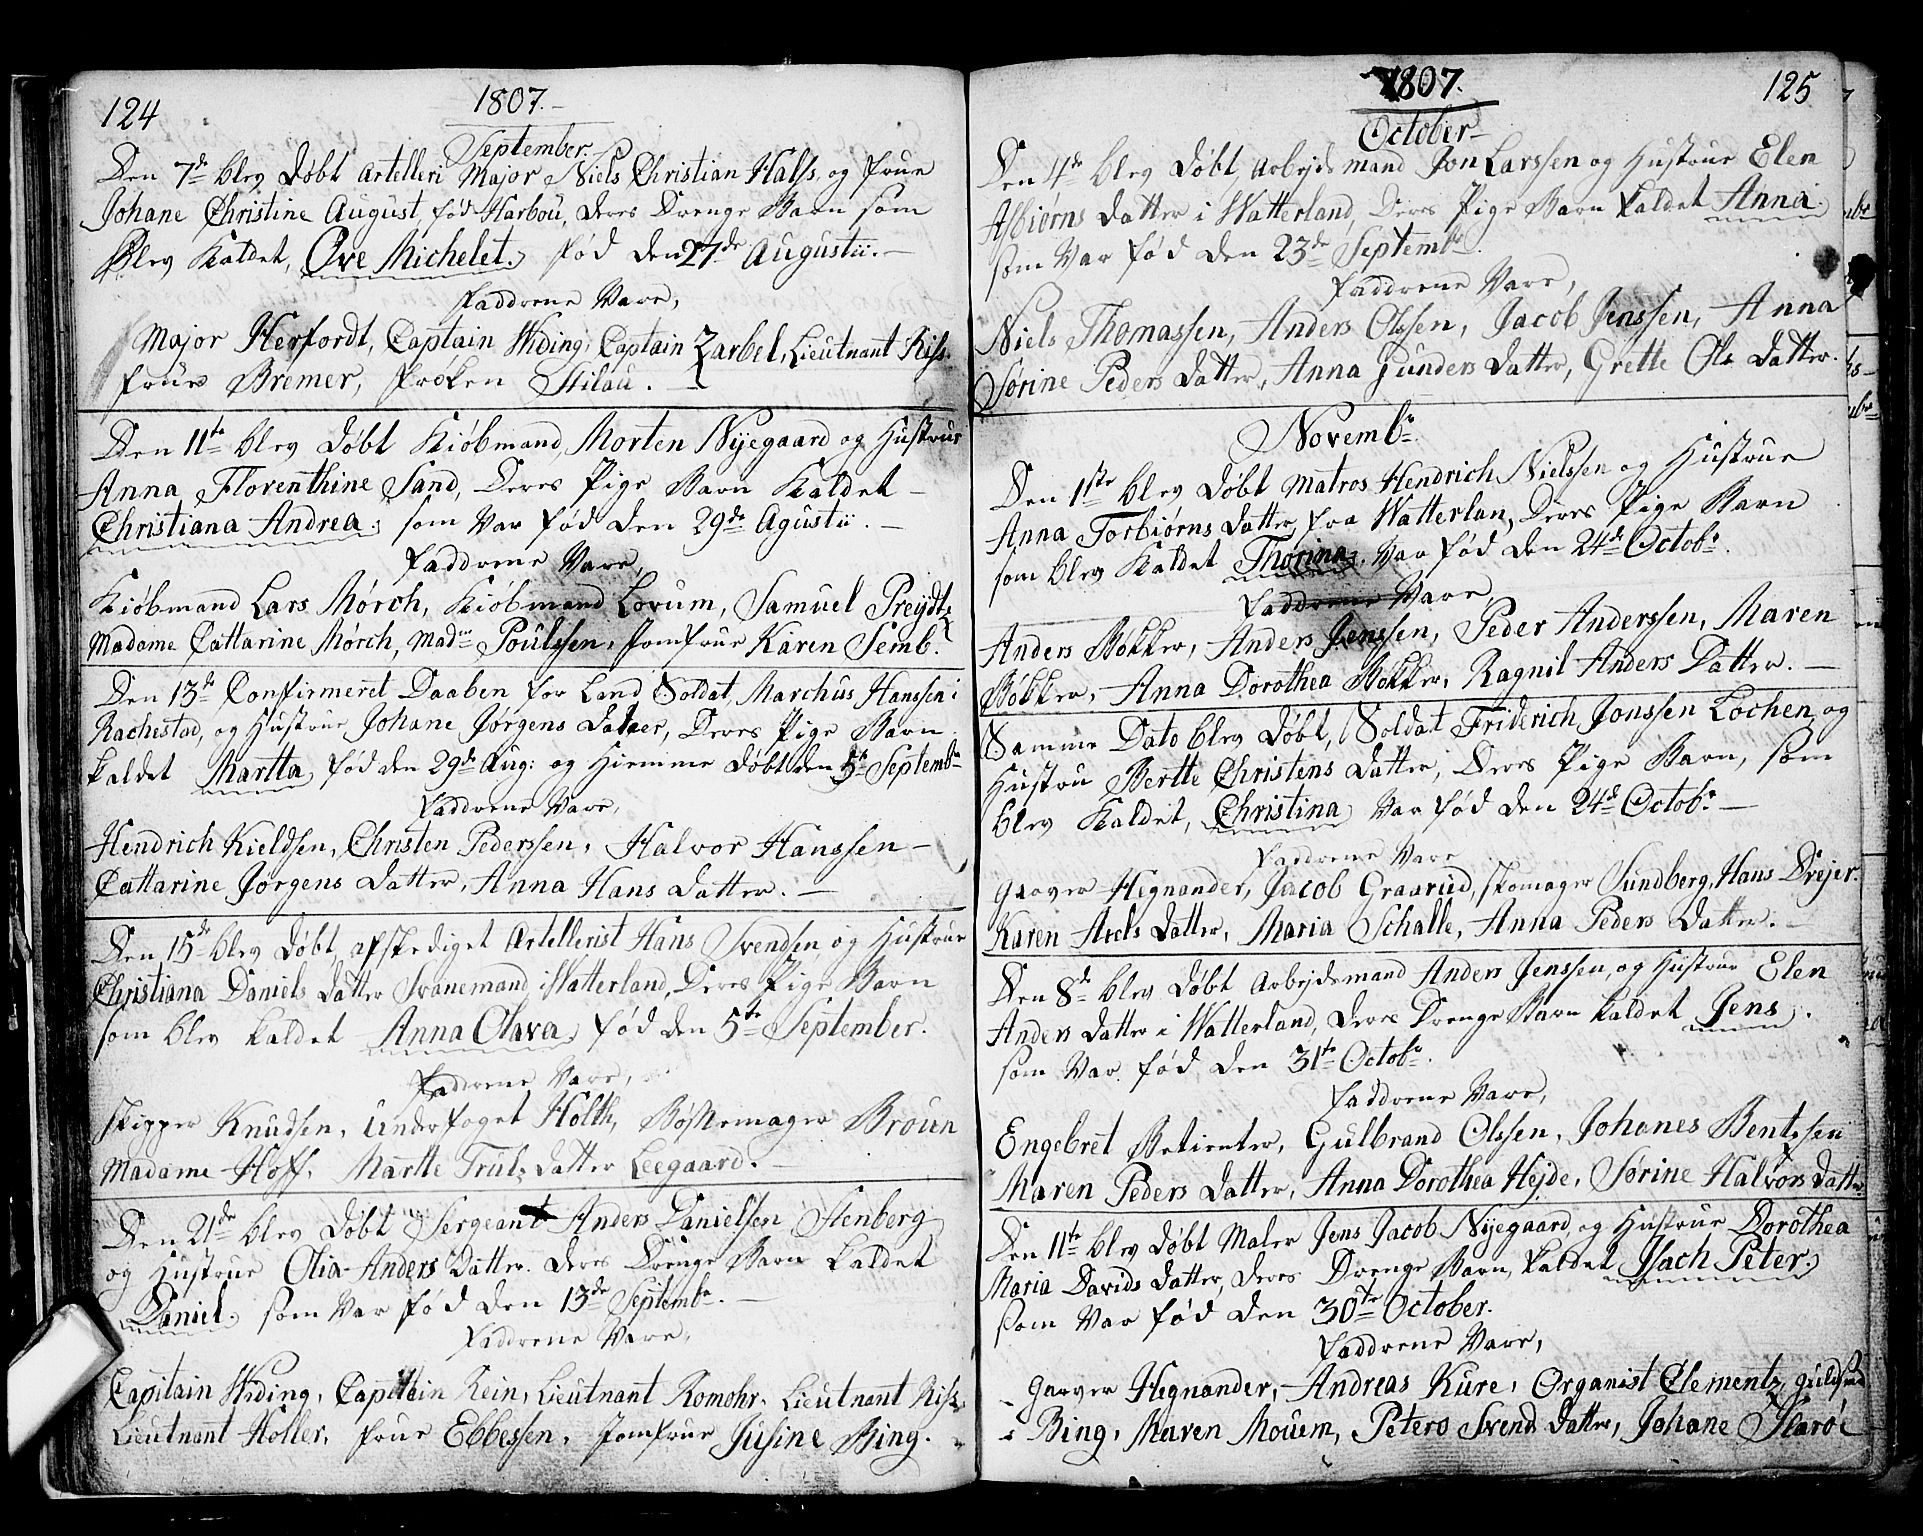 124
1807.
September
Den 7de blev døbt Artelleri Major Niels Christian Halss, og Frue
Johane Christine August, fød Harbou, deres Drenge Barn som
blev Kaldet, Ove Michelet. fød den 27de Augustii.
Faddrene Vare,
Major Herfordt, Captain Widing, Captain Zarbel, Lieutnant Riss.
Frue Bremer, Frøken Stilau.
Den 11te blev døbt Kiøbmand, Morten Nyegaard og Hustrue
Anna Florenthine Sand, Deres Pige Barn Kaldet
Christiana Andrea, som Var fød den 29de Agustii.
Faddrene Vare,
Kiøbmand Lars Mørch, Kiøbmand Lorum, Samuel Preydtz
Madame Cattarine Mørch, Madm Poulssen, Jomfrue Karen Semb.
Den 13de Confirmeret Daaben for Land Soldat, Marchus Hanssen i
Rachestad, og Hustrue Johane Jørgens Datter, Deres Pige Barn
kaldet Martta, fød den 29de Aug: og Hiemme døbt den 5te Septembr
Faddrene Vare,
Hendrich Kieldsen, Christen Pederssen, Halvor Hanssen
Cattarine Jørgens Datter, Anna Hans Datter.
Den 15de blev døbt, afskediget Artellerist Hans Svendsen, og Hustrue
Christiana Daniels Datter Svanemand i Watterland, Deres Pige Barn
som blev kaldet Anna Olava, fød den 5te September.
Faddrene Vare,
Skipper Knudsen, Underfoget Holth, Bøssemager Broun
Madame Hoff, Martte Truls Datter Leegaard.
Den 21de blev døbt Sergeant Anders Danielsen Stenberg
og Hustrue Olia Anders Datter. deres Drenge Barn kaldet
Daniel. som Var fød den 13de Septembr.
Faddrene Vare,
Capitain Widing, Capitain Rein, Lieutnant Romohr, Lieutnant Riss,
Lieutnant Høller, Frue Ebbessen, Jomfrue Jusine Bing.
125
1807.
October
Den 4de blev døbt, Arbejdsmand Jon Larssen og Hustrue Elen
Asbiørns datter i Watterland, Deres Pige Barn kaldet Anna
som Var fød den 23de Septembr.
Faddrene Vare,
Niels Thomassen, Anders Olssen, Jacob Jenssen, Anna
Sørine Peders Datter, Anna Gunders Datter, Grette Ols Datter.
Novembr.
Den 1ste blev døbt Matros Hendrich Nielssen og Hustrue
Anna Torbiørns Datter, fra Watterlan, Deres Pige Barn
som blev Kaldet Thorina, Var fød den 24de Octobr.
Faddrene Vare,
Anders Bøkker, Anders Jenssen, Peder Anderssen, Maren
Bøkker, Anna Dorothea Bøkker, Ragnil Anders Datter.
Samme Dato blev døbt, Soldat Friderich Jonssen Lochen og
Hustru Bertte Christens Datter, Deres Pige Barn, som
blev Kaldet, Christina, Var fød den 24de Octobr.
Faddrene Vare
Garver Hegnander, Jacob Graarud, Skomager Sundberg, Hans Drejer.
Karen Axels Datter, Maria Schalle, Anna Peders Datter.
Den 8de blev døbt Arbejdsmand Anders Jenssen, og Hustrue Elen
Anders Datter i Watterland, deres Drenge Barn kaldet Jens.
som Var fød den 31te Octobr.
Faddrene Vare,
Engebret Betienter, Gulbrand Olssen, Johanes Bentzsen
Maren Peders Datter, Anna Dorothea Hejde, Sørine Halvors Datter
Den 11te blev døbt Maler Jens Jacob Nyegaard, og Hustrue Dorothea
Maria Davids Datter, deres Drenge Barn kaldet Isach Peter.
som Var fød den 30te October.
Faddrene Vare,
Garver Hegnander, Andreas Kure, Organist Clementz, Guldsmed
Bing, Maren Mouem, Peters Svends Datter, Johane Skarøe